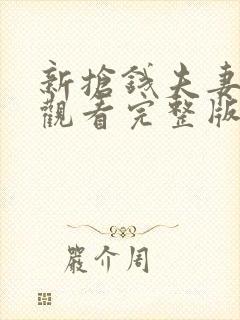 新搶錢夫妻
觀看完整版
嚴介周